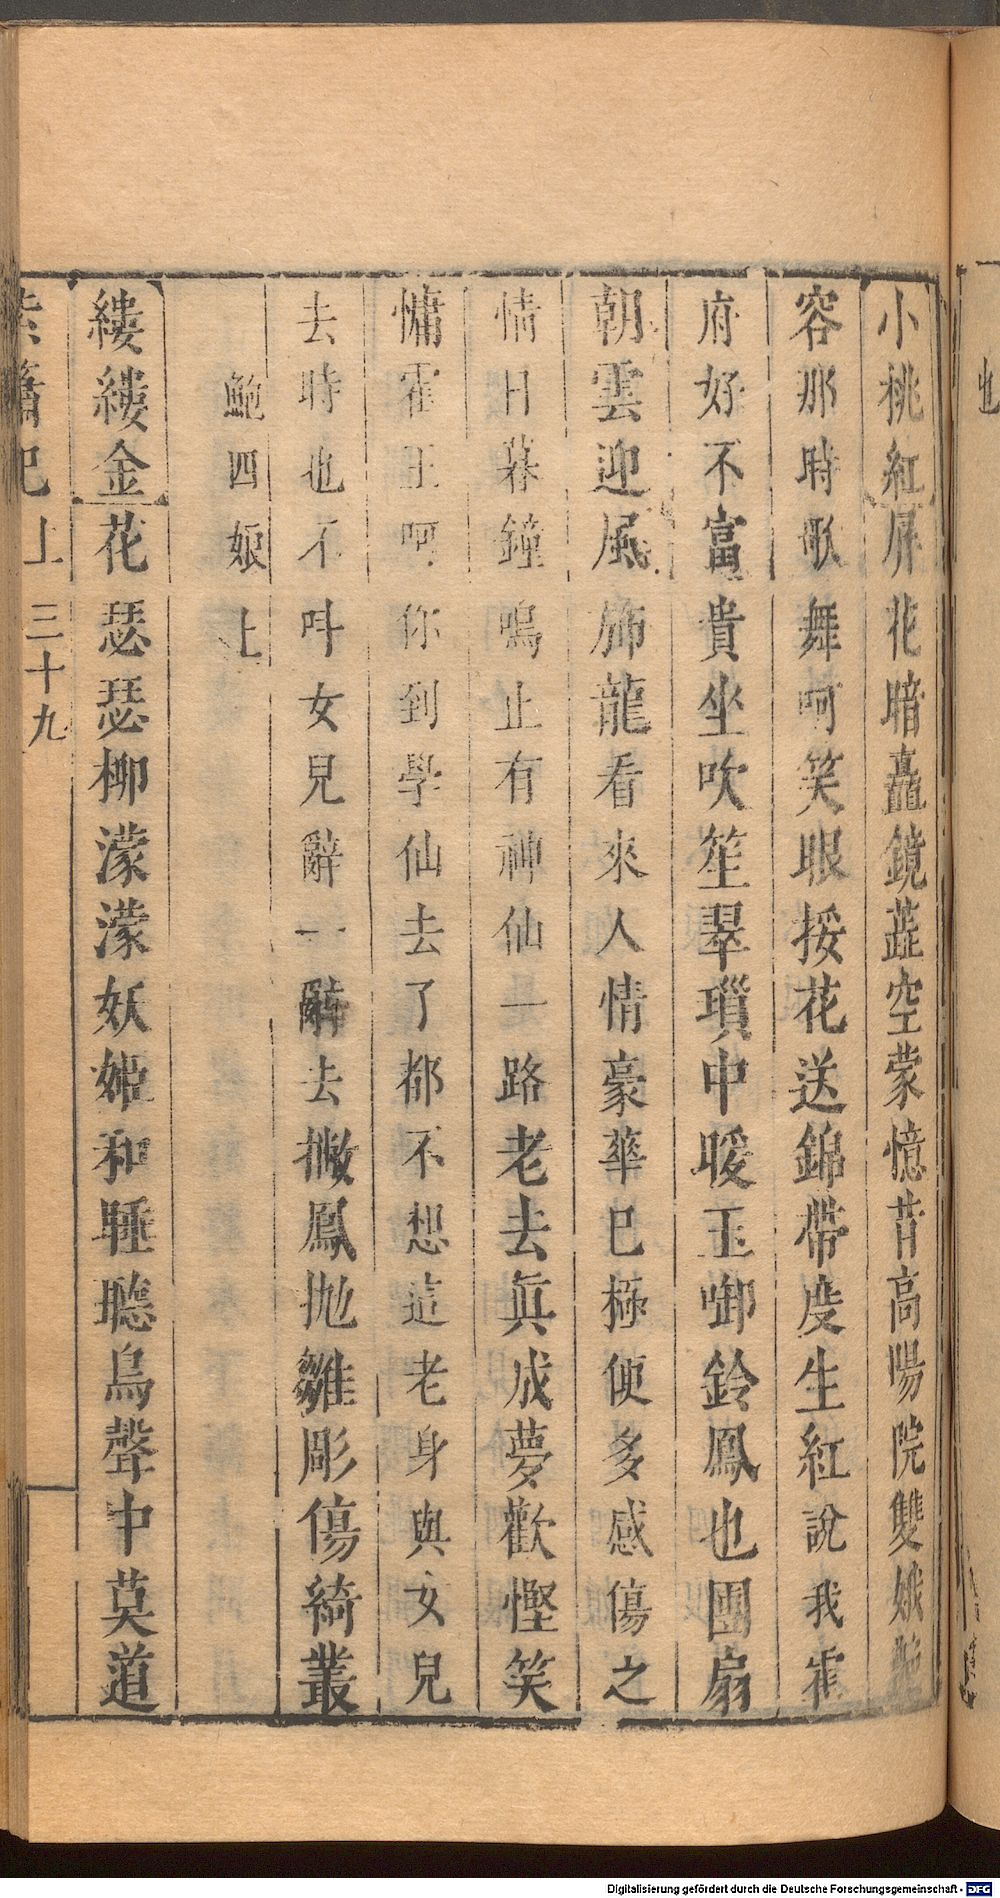 小桃紅屏花暗矗鏡蘂空蒙憶昔高陽院雙娥艷
容那時歌舞呵笑眼挼花送錦帶度生紅說我霍
府好不富貴坐吹笙翠瑣中暖玉啣鈴鳳也團扇
朝雲迎風飾龍看來人情豪華已極便多感傷之
情日暮鐘鳴止有神仙一路老去眞成夢歡慳笑
慵霍王呵你到學仙去了都不想這老身與女兒
去時也不呌女兒辭一辭去撇鳳拋雛彫傷綺叢
鮑四娘上
縷縷金花瑟瑟柳濛濛妖姬和睡聽鳥聲中莫道
紫簫記 上 三十九
也
Digitalisierung gefördert durch die Deutsche Forschungsgemeinschaft - DFG